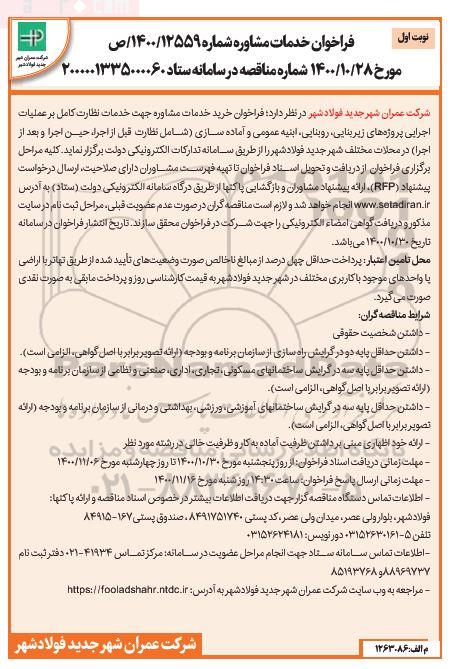 نوبت اول
فراخوان خدمات مشاوره شماره ۱۴۰۰/۱۲۵۵۹/ص
مورخ ۱۴۰۰/۱۰/۲۸ شماره مناقصه در سامانه ستاد ۲۰۰۰۰۰۱۳۳۵۰۰۰۰۶۰
شرکت عمران شهر جدید فولادشهر
شرکت عمران شهر جدید فولادشهر در نظر دارد؛ فراخوان خرید خدمات مشاوره جهت خدمات نظارت کامل بر عملیات
اجرایی پروژه‌های زیربنایی، روبنایی، ابنیه عمومی و آماده سازی (شامل نظارت قبل از اجرا، حین اجرا و بعد از
اجرا) در محلات مختلف شهر جدید فولادشهر را از طریق سامانه تدارکات الکترونیکی دولت برگزار نماید. کلیه مراحل
برگزاری فراخوان از دریافت و تحویل اسناد فراخوان تا تهیه فهرست مشاوران دارای صلاحیت، ارسال درخواست
پیشنهاد (RFP)، ارائه پیشنهاد مشاوران و بازگشایی پاکتها از طریق درگاه سامانه الکترونیکی دولت (ستاد) به آدرس
www.setadiran.ir انجام خواهد شد و لازم است مناقصه گران در صورت عدم عضویت قبلی، مراحل ثبت نام در سایت
مذکور و دریافت گواهی امضاء الکترونیکی را جهت شرکت در فراخوان محقق سازند. تاریخ انتشار فراخوان در سامانه
تاریخ ۱۴۰۰/۱۰/۳۰ می‌باشد.
محل تأمین اعتبار: پرداخت حداقل چهل درصد از مبالغ ناخالص صورت وضعیت‌های تأیید شده از طریق تهاتر با اراضی
یا واحدهای موجود با کاربری مختلف در شهر جدید فولادشهر به قیمت کارشناسی روز و پرداخت مابقی به صورت نقدی
صورت می‌گیرد.
شرایط مناقصه گران:
- داشتن شخصیت حقوقی
- داشتن حداقل پایه دو در گرایش راه سازی از سازمان برنامه و بودجه (ارائه تصویر برابر با اصل گواهی، الزامی است).
- داشتن حداقل پایه سه در گرایش ساختمانهای مسکونی، تجاری، اداری، صنعتی و نظامی از سازمان برنامه و بودجه
(ارائه تصویر برابر با اصل گواهی، الزامی است).
- داشتن حداقل پایه سه در گرایش ساختمانهای آموزشی، ورزشی، بهداشتی و درمانی از سازمان برنامه و بودجه (ارائه
تصویر برابر با اصل گواهی، الزامی است).
- ارائه خود اظهاری مبنی بر داشتن ظرفیت آماده به کار و ظرفیت خالی در رشته مورد نظر
- مهلت زمانی دریافت اسناد فراخوان: از روز پنجشنبه مورخ ۱۴۰۰/۱۰/۳۰ تا روز چهارشنبه مورخ ۱۴۰۰/۱۱/۰۶
- مهلت زمانی ارسال پاسخ فراخوان: ساعت ۱۴:۳۰ روز شنبه مورخ ۱۴۰۰/۱۱/۱۶
- اطلاعات تماس دستگاه مناقصه گزار جهت دریافت اطلاعات بیشتر در خصوص اسناد مناقصه و ارائه پاکتها:
فولادشهر، بلوار ولی عصر، میدان ولی عصر، کد پستی ۸۴۹۱۷۵۱۷۴۰، صندوق پستی ۱۶۷-۸۴۹۱۵
تلفن ۵-۰۳۱۵۲۶۳۰۱۶۱ دور نویس: ۰۳۱۵۲۶۲۴۱۸۱
- اطلاعات تماس سامانه ستاد جهت انجام مراحل عضویت در سامانه: مرکز تماس ۴۱۹۳۴-۰۲۱ دفتر ثبت نام
۸۸۹۶۹۷۳۷ و ۸۵۱۹۳۷۶۸
- مراجعه به وب سایت شرکت عمران شهر جدید فولادشهر به آدرس: https://fooladshahr.ntdc.ir
م الف: ۱۲۶۳۰۸۶
شرکت عمران شهر جدید فولادشهر